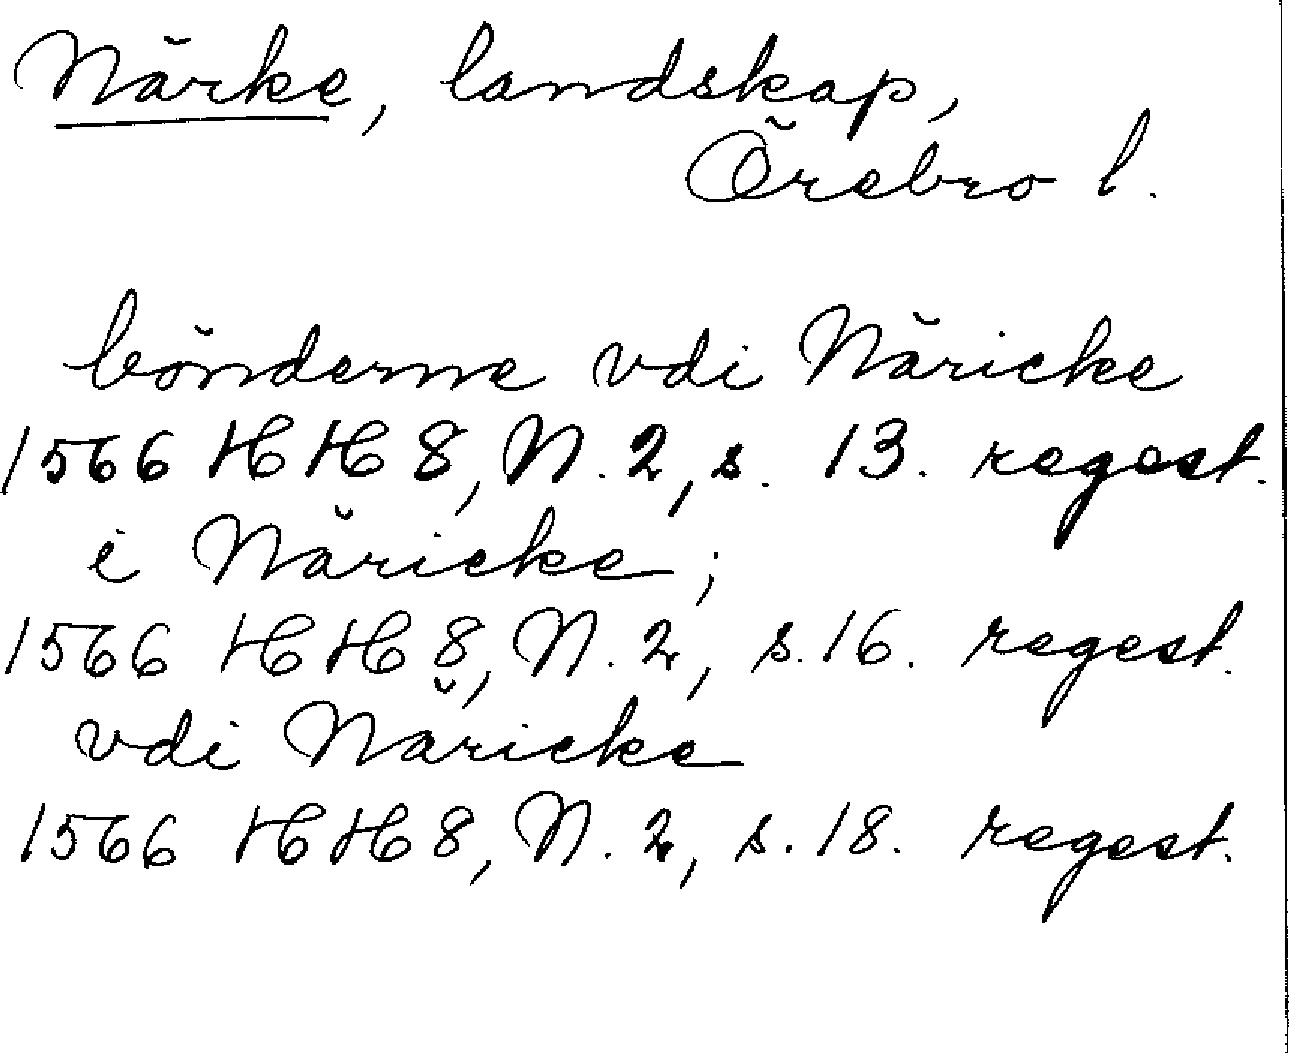 Närke, landskap,
Örebro l.
bönderne vdi Näricke
1566 HH 8, N. 2, s. 13. regest.
i Näricke;
1566 HH 8, N. 2, s. 16. regest.
vdi Näricke
1566 HH 8, N. 2, s. 18. regest.